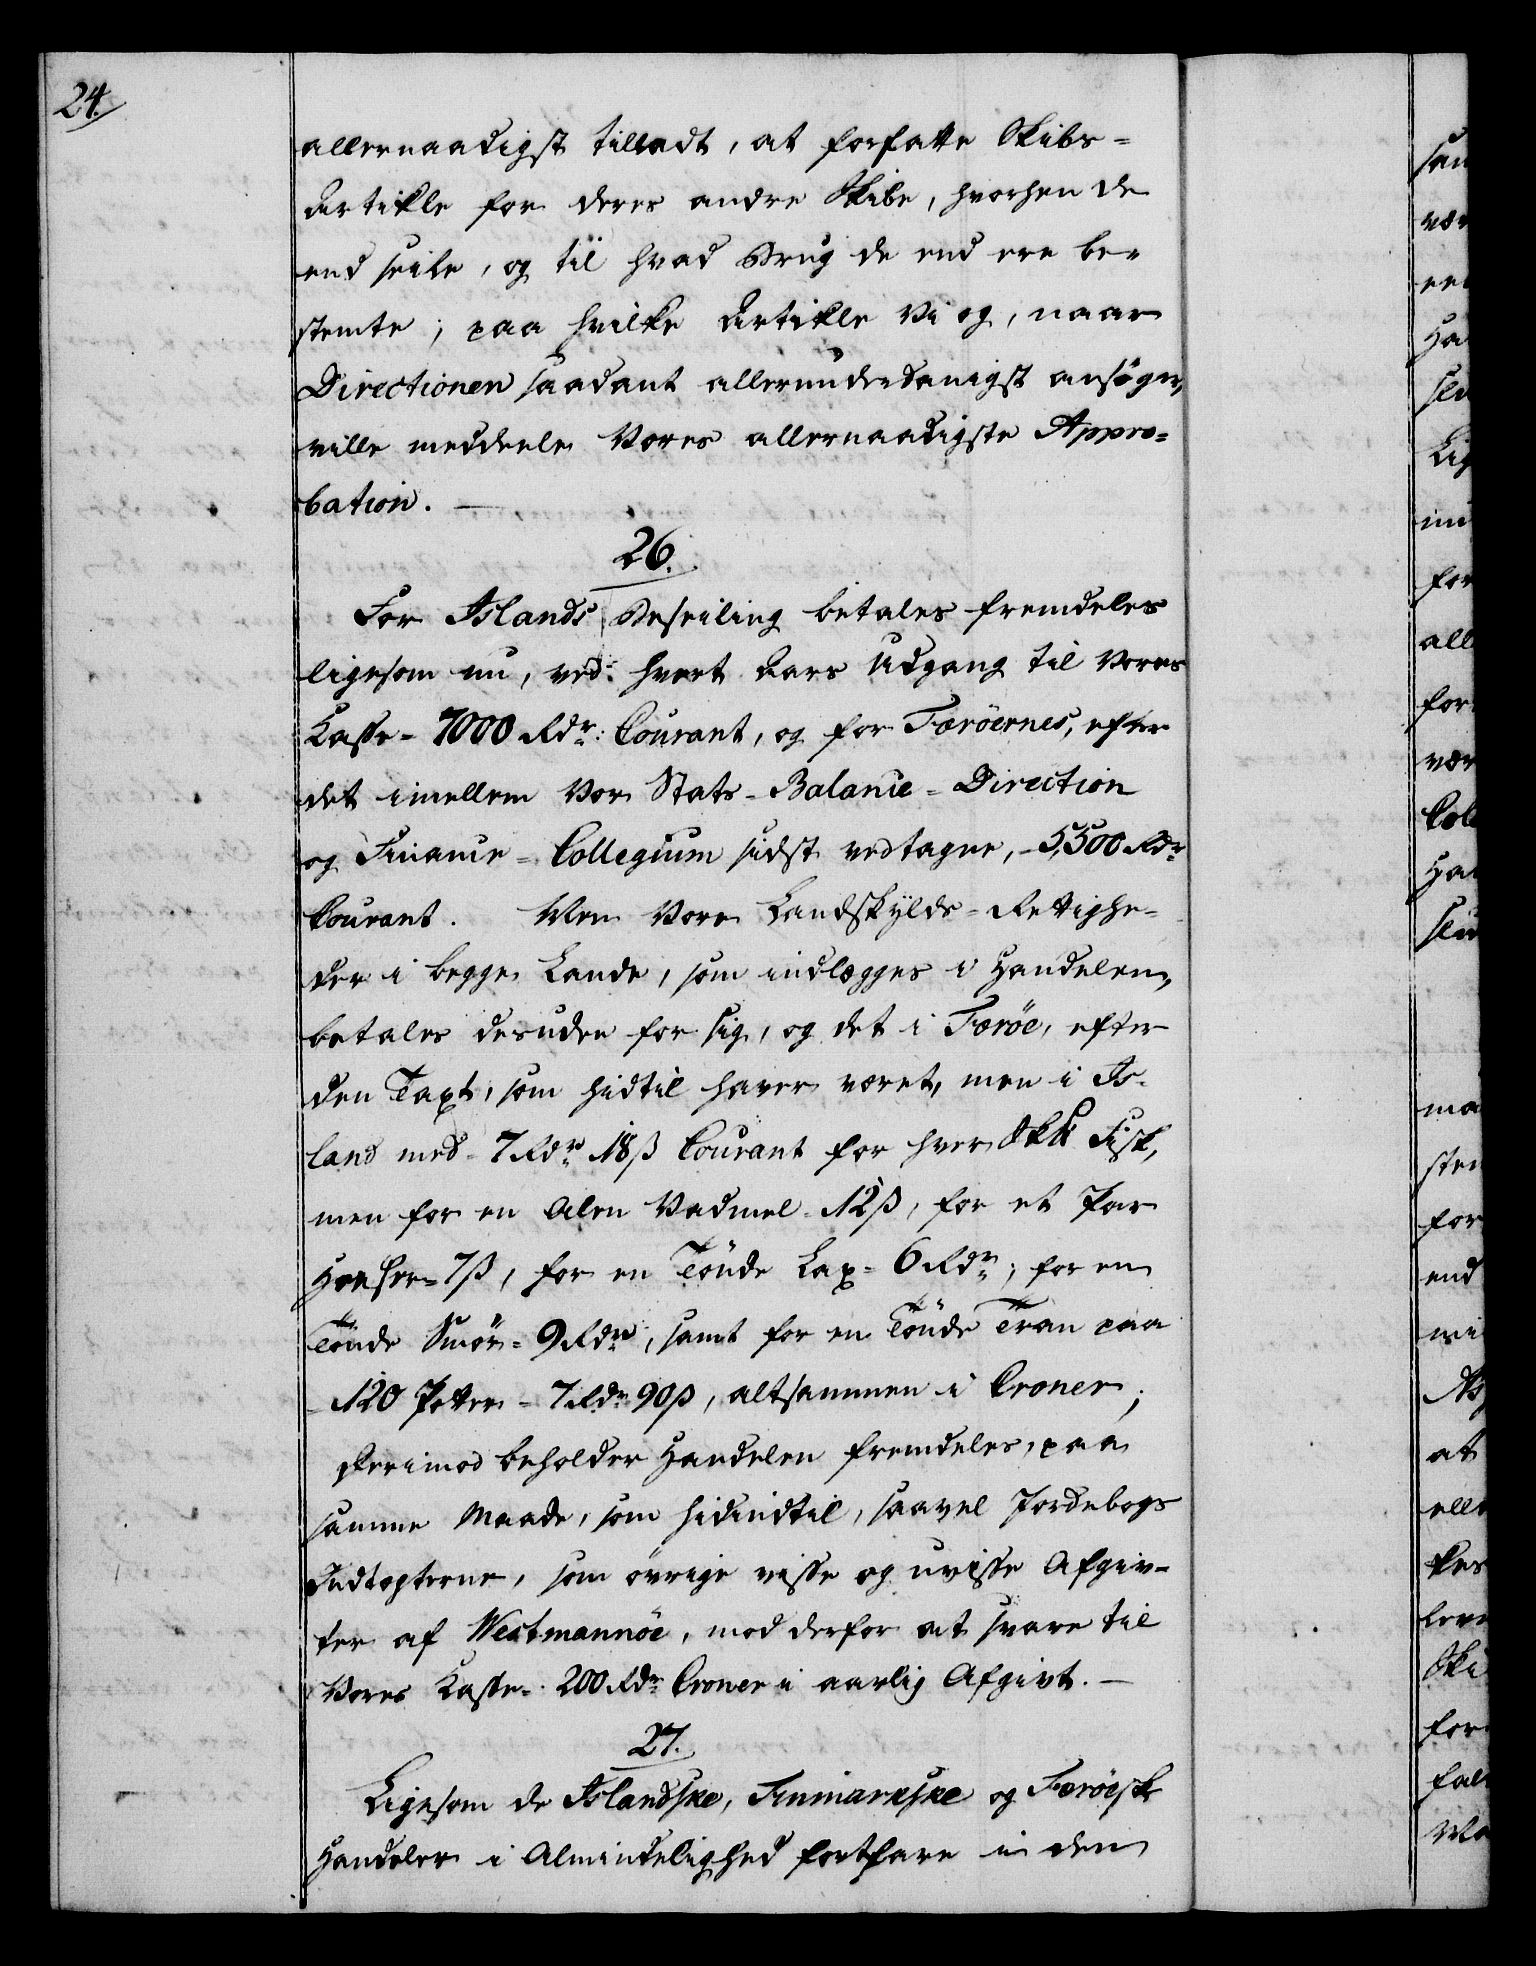 24.
allernaadigst tilladt, at forfatte Skibs-
Artikle for deres andre Skibe, hvorhen de
end seile, og til hvad Brug de end ere be-
stemte; paa hvilke Artikle Vi og, naar
Directionen saadant allerunderdanigst ansøger,
ville meddeele Vores allernaadigste Appro=
bation. —
26.
For Islands Beseiling betales fremdeles
ligesom nu, ved hvert Aars Udgang til Vores
Kasse - 7000 Rdr. Courant, og for Færöernes, efter
det imellem Vor Stats-Balance-Direction
og Finance-Collegium sidst vedtagne, - 5,500 Rdr
Courant. Men Vore Landskylds-Rettighe-
der i begge Lande, som indlægges i Handelen,
betales desuden for sig, og det i Færöe, efter
den Taxt, som hidtil haver været, men i Is-
land med - 7 Rdr 18 ß Courant for hver Sk℔ Fisk,
men for en Alen Vadmel - 12 ß, for et Par
Hoser - 7 ß, for en Tönde Lax - 6 Rdr; for en
Tönde Smör - 9 Rdr, samt for en Tönde Tran paa
- 120 Potter - 7 Rdr 90 ß, altsammen i Croner;
derimod beholder Handelen fremdeles, paa
samme Maade, som hidindtil, saavel Jordebogs
Indtægterne, som övrige visse og uvisse Afgiv-
ter af Westmannöe, mod derfor at svare til
Vores Kasse - 200 Rdr Croner i aarlig Afgivt. —
27.
Ligesom de Islandske, Finmarkske og Færöeske
Handeler i Almindelighed fortfare i den